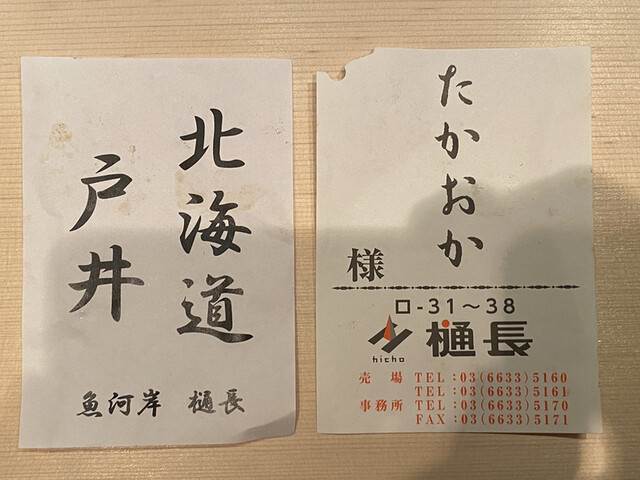 北海道
戸井
魚河岸 樋長
たかおか
様
ロ-31～38
樋長
hicho
売場 TEL:03(6633)5160
TEL:03(6633)5161
事務所 TEL:03(6633)5170
FAX:03(6633)5171